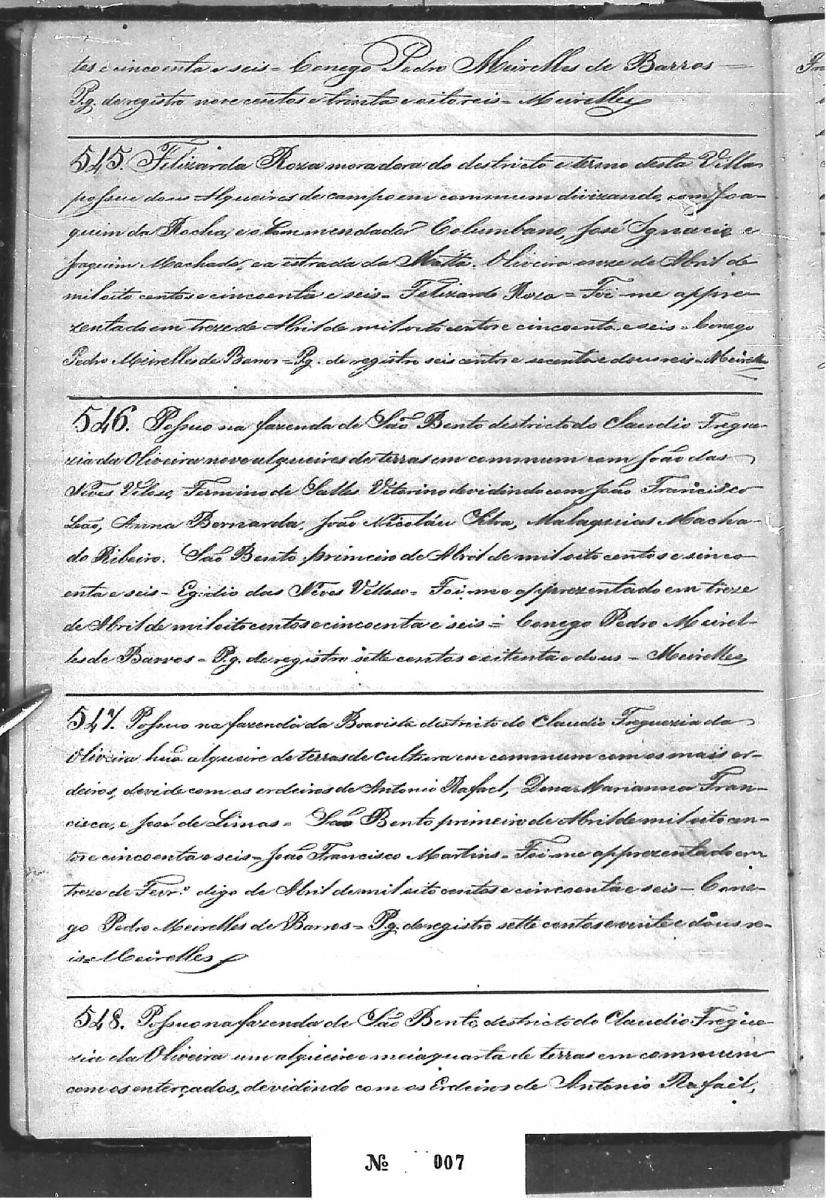 tos e cincoenta e seis = Conego Pedro Meirelles de Barros =
Pg. de registro nove centos e trinta e oito reis = Meirelles
545. Felizarda Roza moradora do destricto e termo desta Villa
possue dous Alqueires de campo em commum divizando, com Joa-
quim da Rocha, e o Commendador Columbano, José Ignacio, e
Joaquim Machado, e a estrada da Matta. Oliveira onze de Abril de
mil oito centos e cincoenta e seis = Felizarda Roza = Foi-me appre-
zentado em treze de Abril de mil oito centos e cincoenta, e seis = Conego
Pedro Meirelles de Barros = Pg. de registro seis centos e secenta e dous reis = Meirelles
546. Possuo na fazenda de São Bento destricto do Claudio Fregue-
zia da Oliveira nove alqueires de terras em commum com João das
Neves Velozo, Fermino de Salles Vitorino devidindo com João Francisco
Leão, Anna Bernarda, João Nicoláu Silva, Malaquias Macha-
do Ribeiro. São Bento primeiro de Abril de mil oito centos e sinco-
enta e seis = Egidio das Neves Vellozo = Foi-me apprezentado em treze
de Abril de mil oito centos e cincoenta e seis = Conego Pedro Meirel-
les de Barros = Pg. de registro sette centos e oitenta e dous = Meirelles
547. Possuo na fazenda da Boavista destricto do Claudio Freguezia da
Oliveira huã alqueire de terras de cultura em commum com os mais er-
deiros, devide com os erdeiros de Antonio Rafael, Dona Marianna Fran-
cisca, e José de Limas = São Bento primeiro de Abril de mil oito cen-
tos e cincoenta e seis = João Francisco Martins = Foi-me apprezentado em
treze de Ferr.º digo de Abril de mil oito centos e cincoenta e seis = Cone-
go Pedro Meirelles de Barros = Pg. de registro sette centos e vinte e dous re-
is = Meirelles
548. Possuo na fazenda de São Bento, destricto do Claudio Fregue-
zia da Oliveira um alqueire e meia quarta de terras em commum
com os enterçados, devidindo com os Erdeiros de Antonio Rafael,
Nº 007